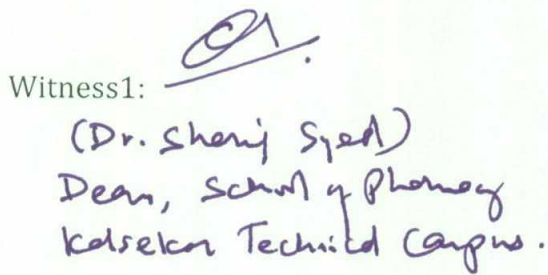 Witness1:
(Dr. Sharif Syed)
Dean, School of Pharmacy
Kalsekar Technical Campus.